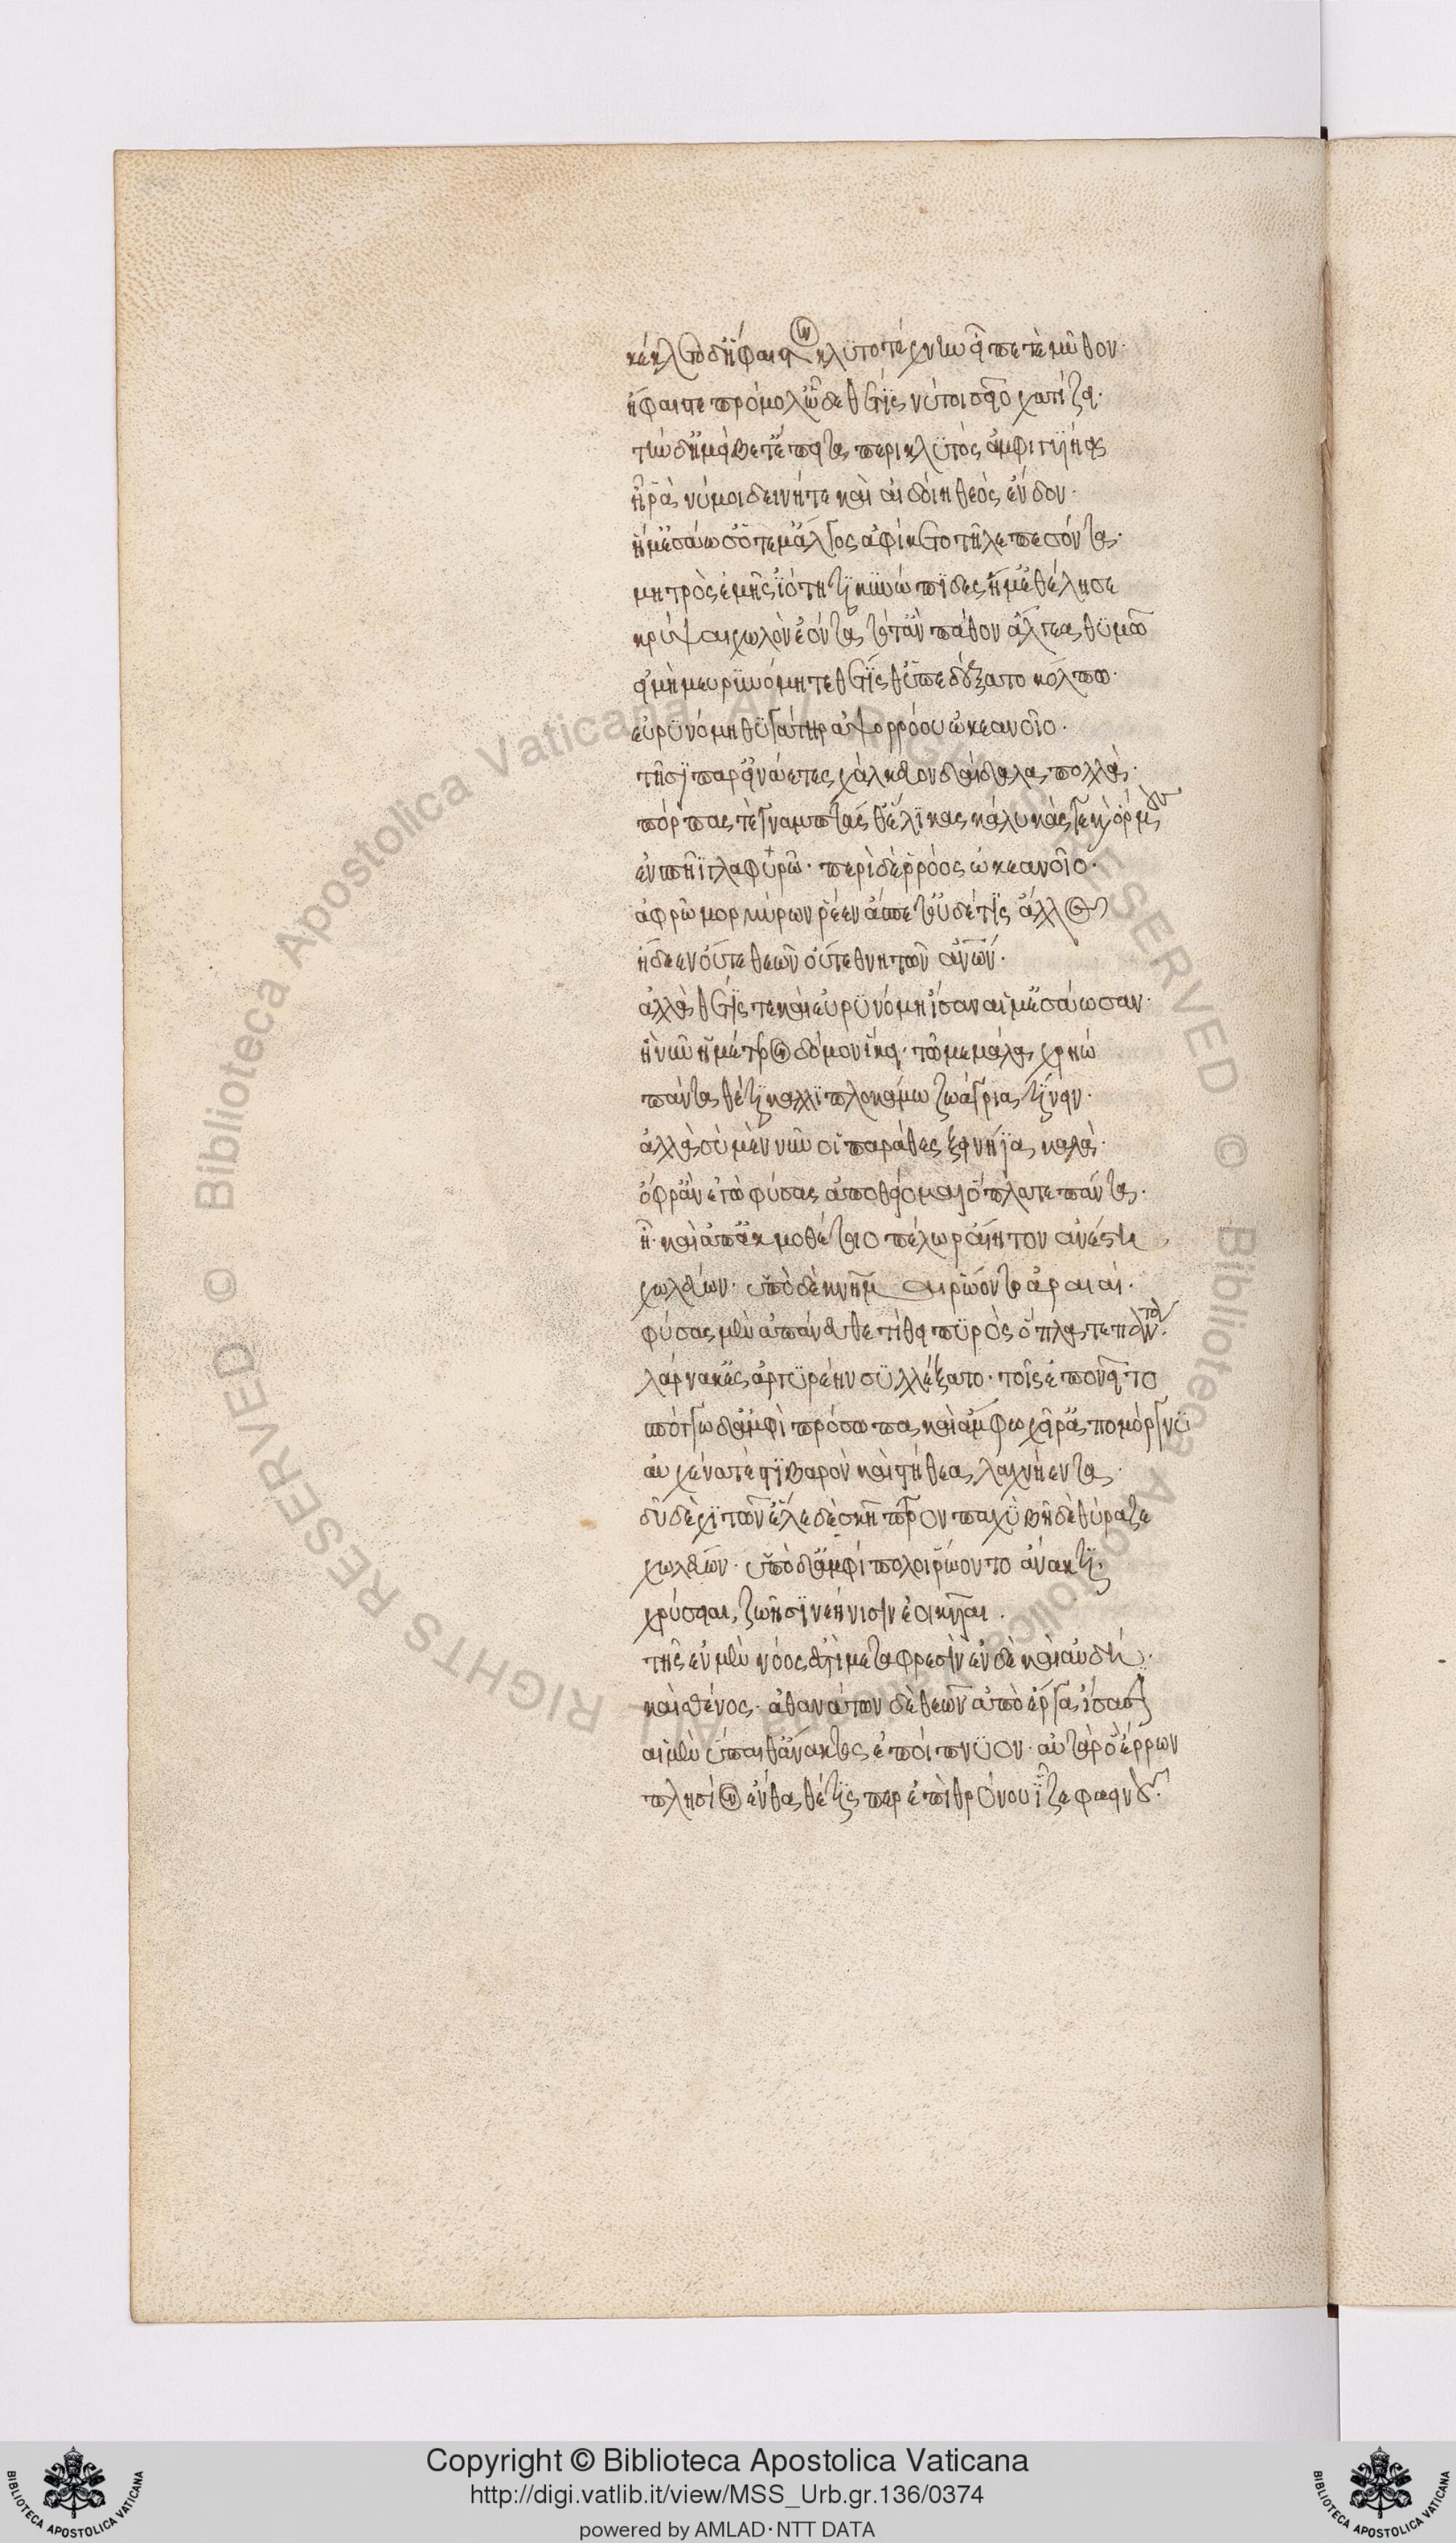 κέκλετο δ' ἥφαιστον κλυτοτέχνην εἶπέ τε μῦθον·
ἥφαιστε πρόμολ' ὧδε θέτις νύ τι σεῖο χατίζει·
τὴν δ' ἠμείβετ' ἔπειτα περικλυτὸς ἀμφιγυήεις
ἦ ῥά νύ μοι δεινή τε καὶ αἰδοίη θεὸς ἔνδον·
ἥ μ' ἐσάωσ' ὅτε μ' ἄλγος ἀφίκετο τῆλε πεσόντα·
μητρὸς ἐμῆς ἰότητι κυνώπιδος ἥ μ' ἐθέλησε
κρύψαι χωλὸν ἐόντα τότ' ἂν πάθον ἄλγεα θυμῶ
εἰ μή μ' εὐρυνόμη τε θέτις θ' ὑπεδέξατο κόλπω·
εὐρυνόμη θυγάτηρ ἀψορρόου ὠκεανοῖο·
τῆσι παρ' εἰνάετες χάλκευον δαίδαλα πολλά·
πόρπας τε γναμπτάς θ' ἕλικας κάλυκάς τε καὶ ὅρμους
ἐν σπῆι γλαφυρῶ· περὶ δὲ ῥόος ὠκεανοῖο·
ἀφρῶ μορμύρων ῥέεν ἄσπετος οὐδέ τις ἄλλος
ἤδεεν οὔτε θεῶν οὔτε θνητῶν ἀνων·
ἀλλὰ θέτις τε καὶ εὐρυνόμη ἴσαν αἵ μ' ἐσάωσαν·
ἣ νῦν ἡμέτερον δόμον ἵκει· τῶ με μάλα χρηώ
πάντα θέτι καλλιπλοκάμω ζωάγρια τίνειν·
ἀλλὰ σὺ μὲν νῦν οἱ παράθες ξεινήια καλά·
ὄφρ' ἂν ἐγὼ φύσας ἀποθείομαι ὅπλα τε πάντα·
ἦ· καὶ ἀπ' ἀκμοθέτοιο πέλωρ αἴητον ἀνέστη
χωλεύων· ὑπὸ δὲ κνῆμαι ῥώοντο ἀραιαί·
φύσας μέν ῥ' ἀπάνευθε τίθει πυρὸς ὅπλα τε πάντα·
λάρνακ' ἐς ἀργυρέην συλλέξατο· τοῖς ἐπονεῖτο
σπόγγω δ' ἀμφὶ πρόσωπα καὶ ἄμφω χεῖρ' ἀπομόργνυ
αὐχένα τε στιβαρὸν καὶ στήθεα λαχνήεντα
δῦ δὲ χιτῶν' ἕλε δὲ σκῆπτρον παχὺ βῆ δὲ θύραζε
χωλεύων· ὑπὸ δ' ἀμφίπολοι ῥώοντο ἄνακτι·
χρύσειαι, ζωῆσι νεήνισιν ἐοικυῖαι.
τῆς ἐν μὲν νόος ἐστὶ μετὰ φρεσὶν ἐν δὲ καὶ αὐδή·
καὶ σθένος· ἀθανάτων δὲ θεῶν ἀπὸ ἔργα ἴσασι
αἱ μὲν ὕπαιθ' ἄνακτος ἐποίπνυον· αὐτὰρ ὁ ἔρρων
πλησίον ἔνθα θέτις περ ἐπὶ θρόνου ἷζε φαεινοῦ·
Copyright © Biblioteca Apostolica Vaticana
http://digi.vatlib.it/view/MSS_Urb.gr.136/0374
powered by AMLAD·NTT DATA